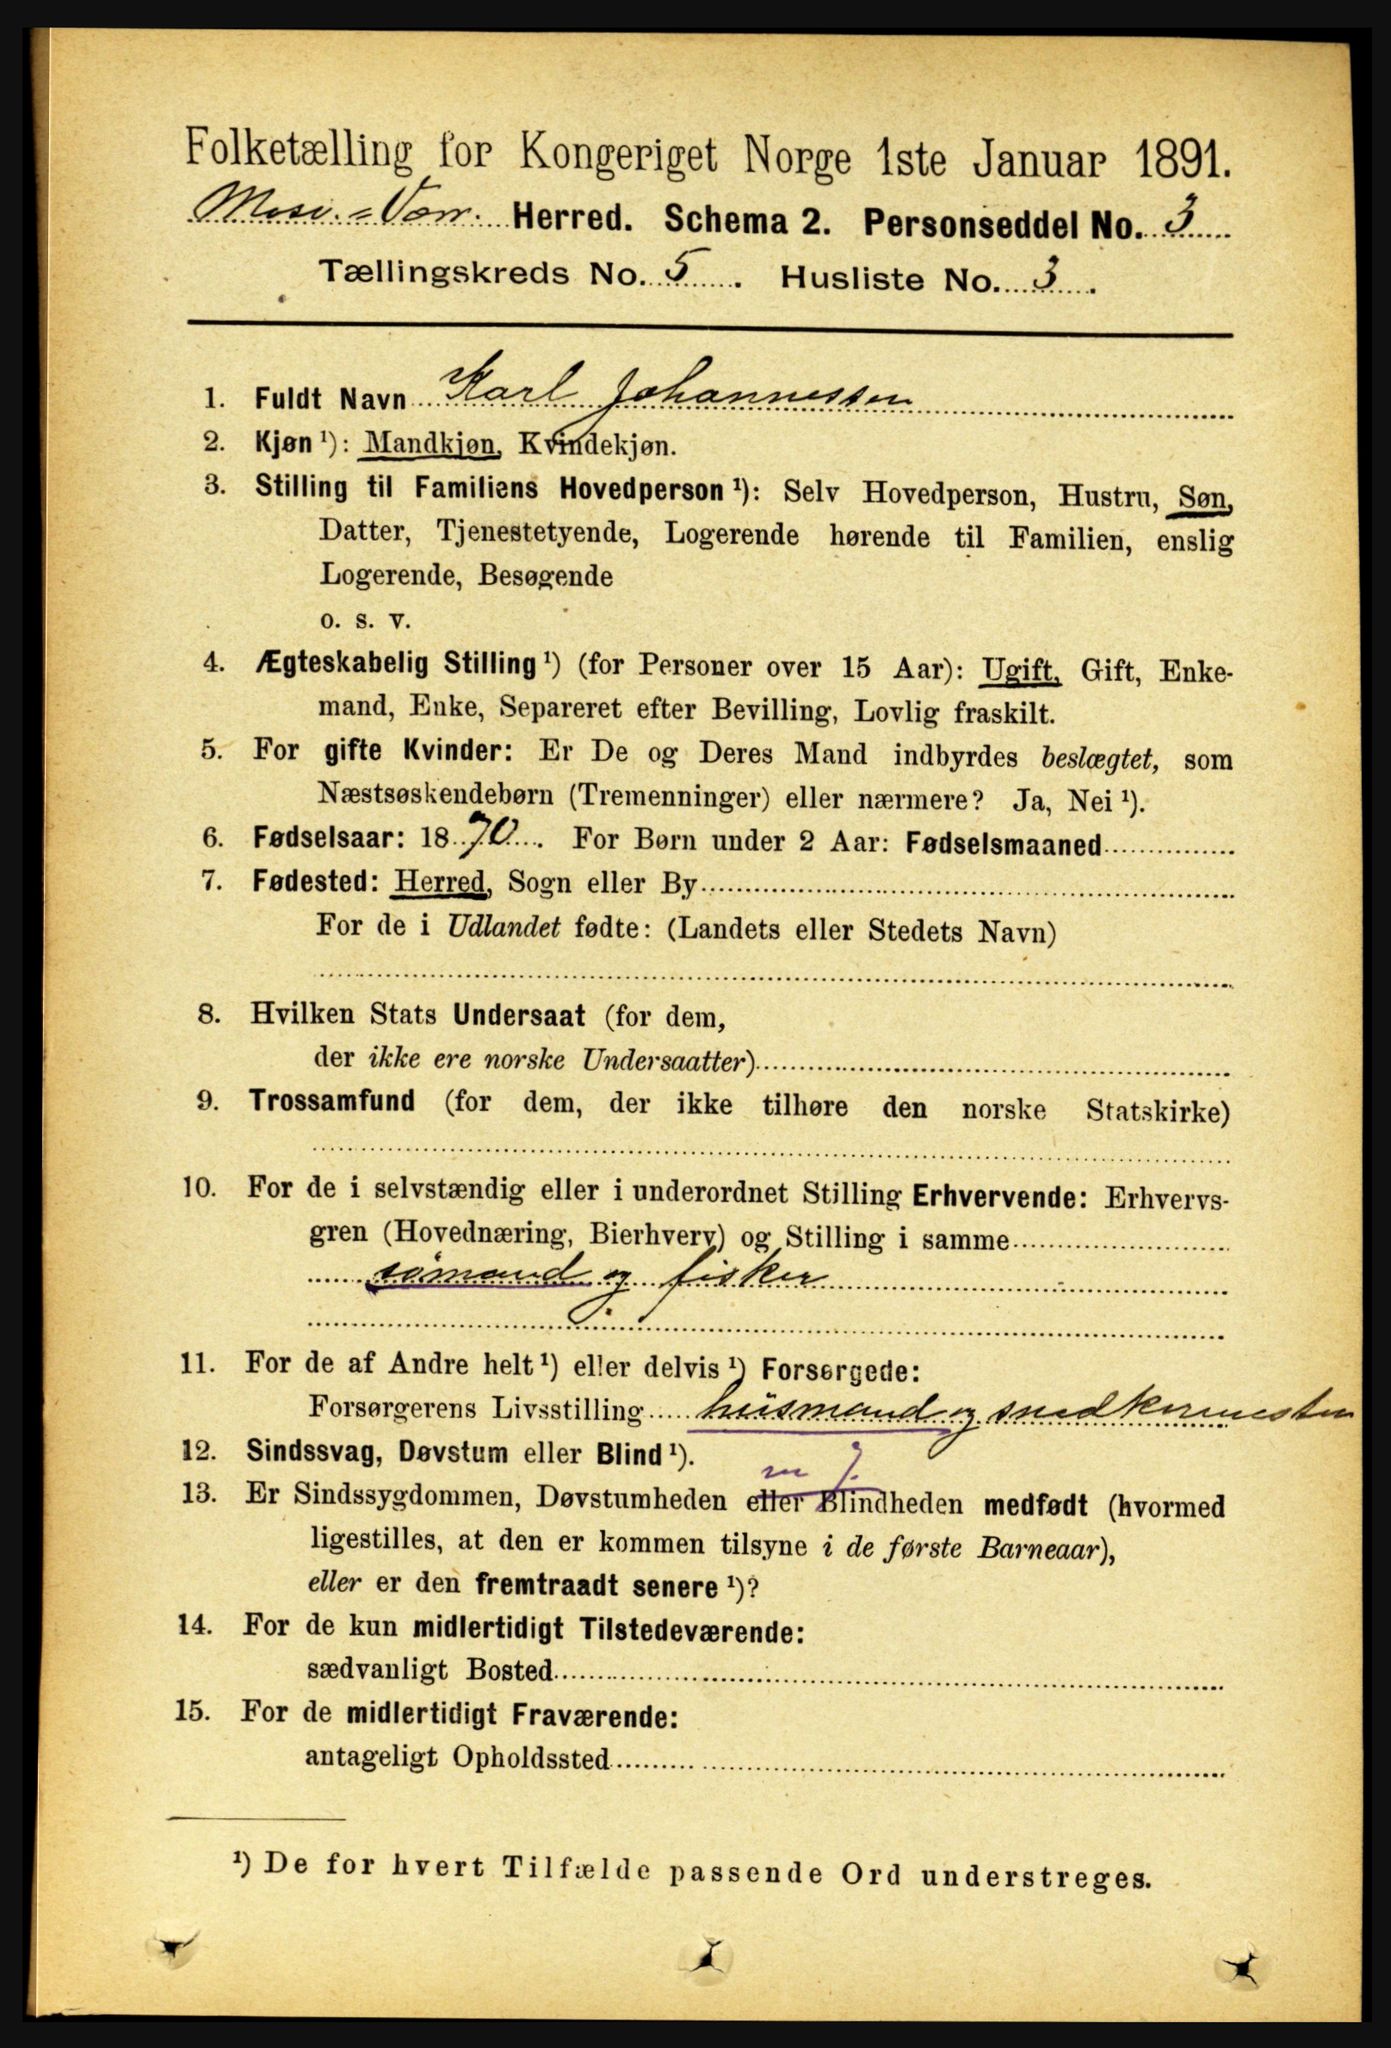 Folketælling for Kongeriget Norge 1ste Januar 1891.
Herred. Schema 2. Personseddel No. 3
Tællingskreds No. 5. Husliste No. 3.
1. Fuldt Navn Karl Johannessen
2. Kjøn ¹): Mandkjøn, Kvindekjøn.
3. Stilling til Familiens Hovedperson ¹): Selv Hovedperson, Hustru, Søn,
Datter, Tjenestetyende, Logerende hørende til Familien, enslig
Logerende, Besøgende
o. s. v.
4. Ægteskabelig Stilling ¹) (for Personer over 15 Aar): Ugift, Gift, Enke-
mand, Enke, Separeret efter Bevilling, Lovlig fraskilt.
5. For gifte Kvinder: Er De og Deres Mand indbyrdes beslægtet, som
Næstsøskendebørn (Tremenninger) eller nærmere? Ja, Nei ¹).
6. Fødselsaar: 1870. For Børn under 2 Aar: Fødselsmaaned
7. Fødested: Herred, Sogn eller By
For de i Udlandet fødte: (Landets eller Stedets Navn)
8. Hvilken Stats Undersaat (for dem,
der ikke ere norske Undersaatter)
9. Trossamfund (for dem, der ikke tilhøre den norske Statskirke)
10. For de i selvstændig eller i underordnet Stilling Erhvervende: Erhvervs-
gren (Hovednæring, Bierhverv) og Stilling i samme
sømand og fisker
11. For de af Andre helt ¹) eller delvis ¹) Forsørgede:
Forsørgerens Livsstilling husmand og snedkermester
12. Sindssvag, Døvstum eller Blind ¹).
13. Er Sindssygdommen, Døvstumheden eller Blindheden medfødt (hvormed
ligestilles, at den er kommen tilsyne i de første Barneaar),
eller er den fremtraadt senere ¹)?
14. For de kun midlertidigt Tilstedeværende:
sædvanligt Bosted
15. For de midlertidigt Fraværende:
antageligt Opholdssted
¹) De for hvert Tilfælde passende Ord understreges.